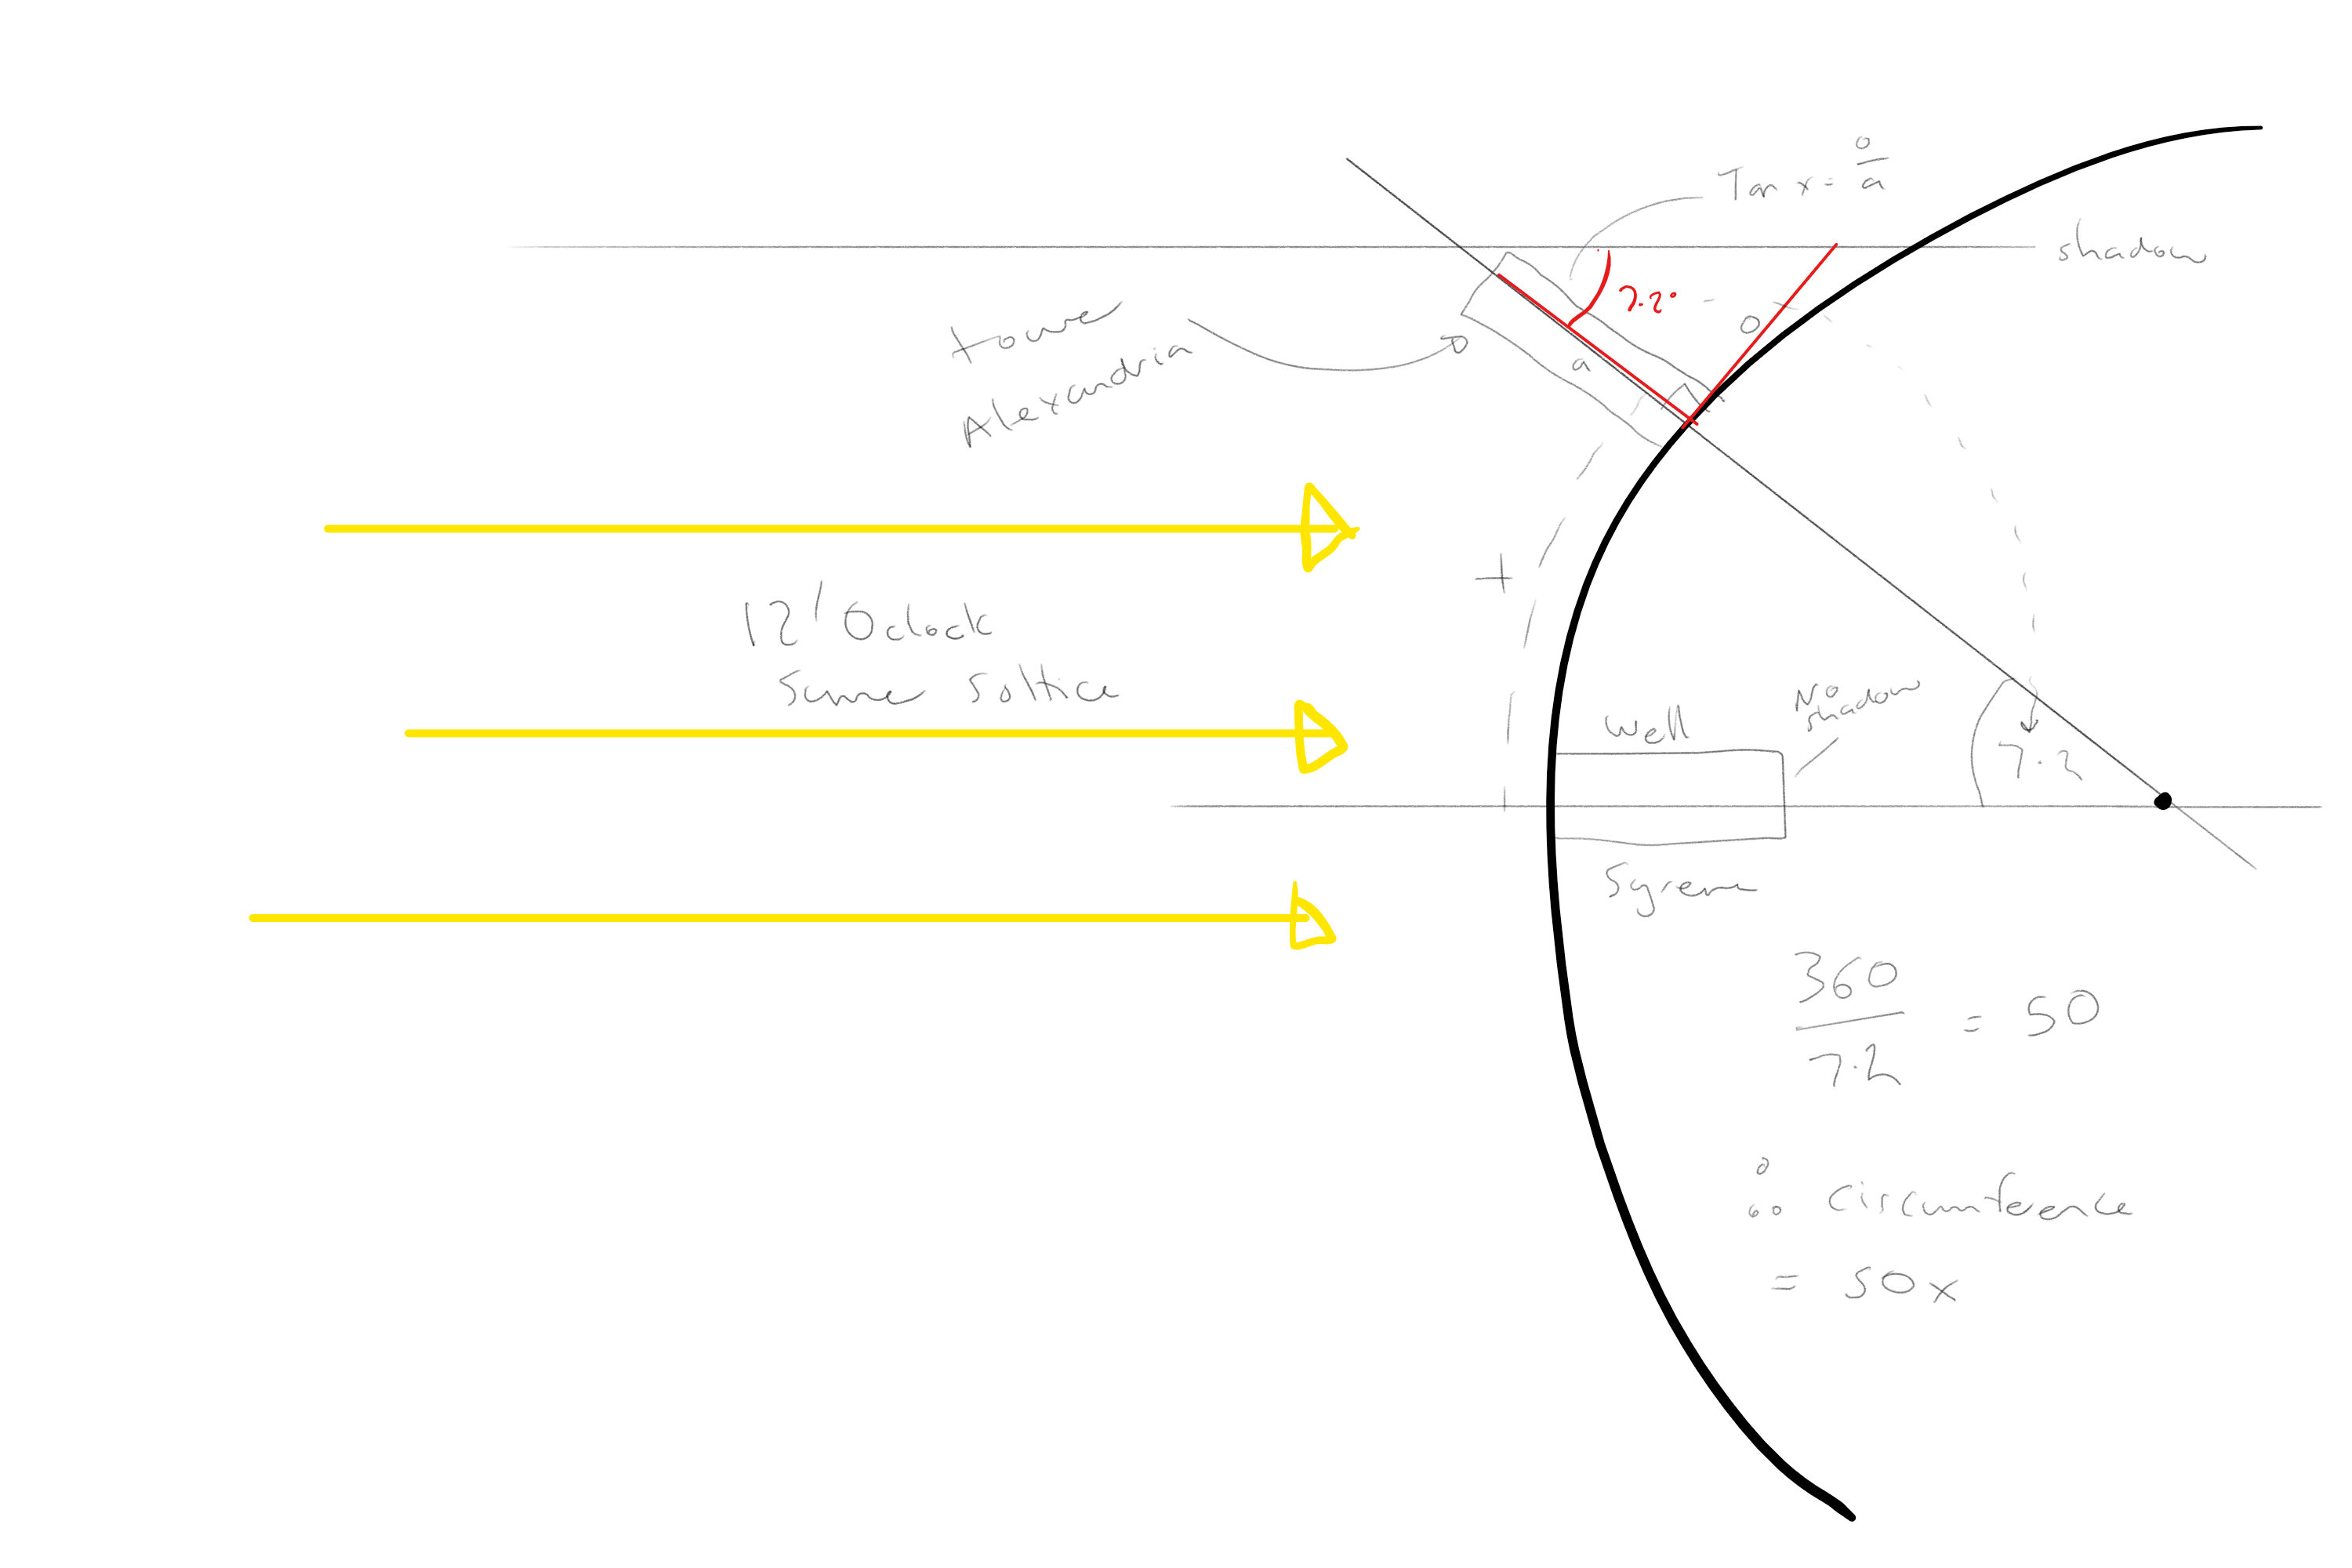 Tan x = o/a
shadow
7.2°
o
a
tower
Alexandria
12' Oclock
Summer Soltice
No
shadow
well
7.2
Syrene
360/7.2 = 50
∴ circumference
= 50x